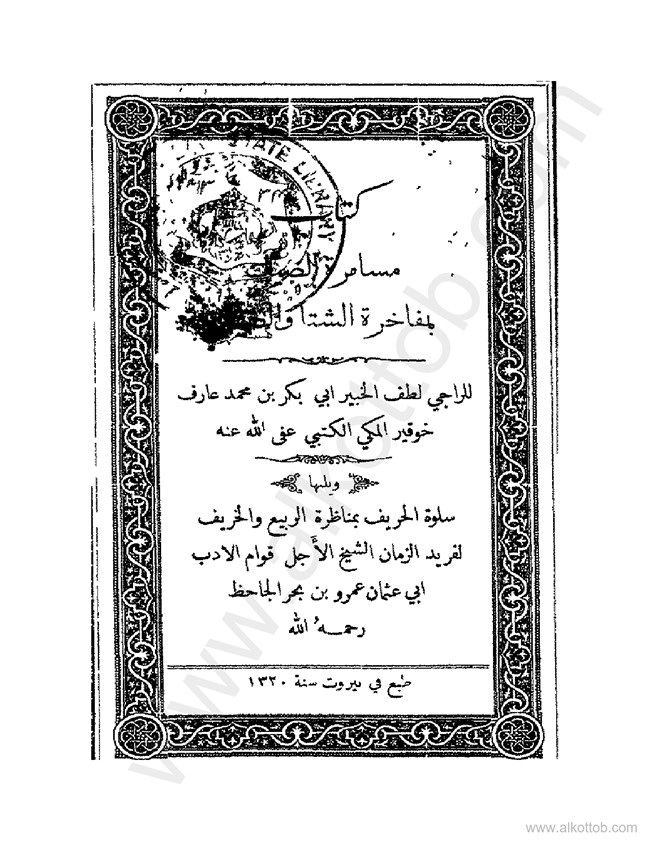 كتاب
مسامرة الضيف
بمفاخرة الشتا والصيف
للراجي لطف الخبير ابي بكر بن محمد عارف
خوقير المكي الكتبي عفى الله عنه
ويليها
سلوة الحريف بمناظرة الربيع والخريف
لفريد الزمان الشيخ الأجل قوام الادب
ابي عثمان عمرو بن بحر الجاحظ
رحمه الله
طبع في بيروت سنة ١٣٢٠
STATE LIBRARY
www.alkottob.com
www.alkottob.com